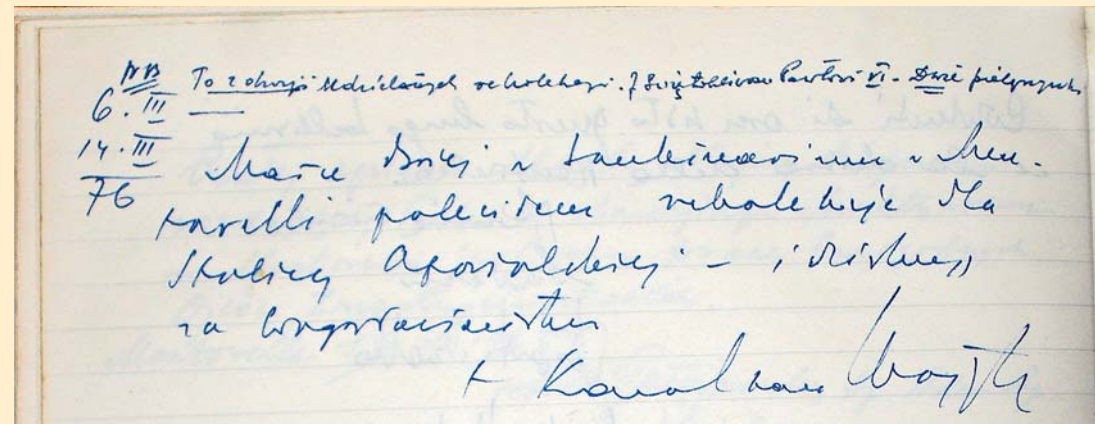 NB To z okazji udzielanych rekolekcji J. Świętobliwości Pawłowi VI. Dwie pielgrzymki
6. III
14. III
76
Matce Bożej w Sanktuarium w Men-
torelli poleciłem rekolekcje dla
Stolicy Apostolskiej – i dziękuję
za błogosławieństwo
+ Karol kard Wojtyła